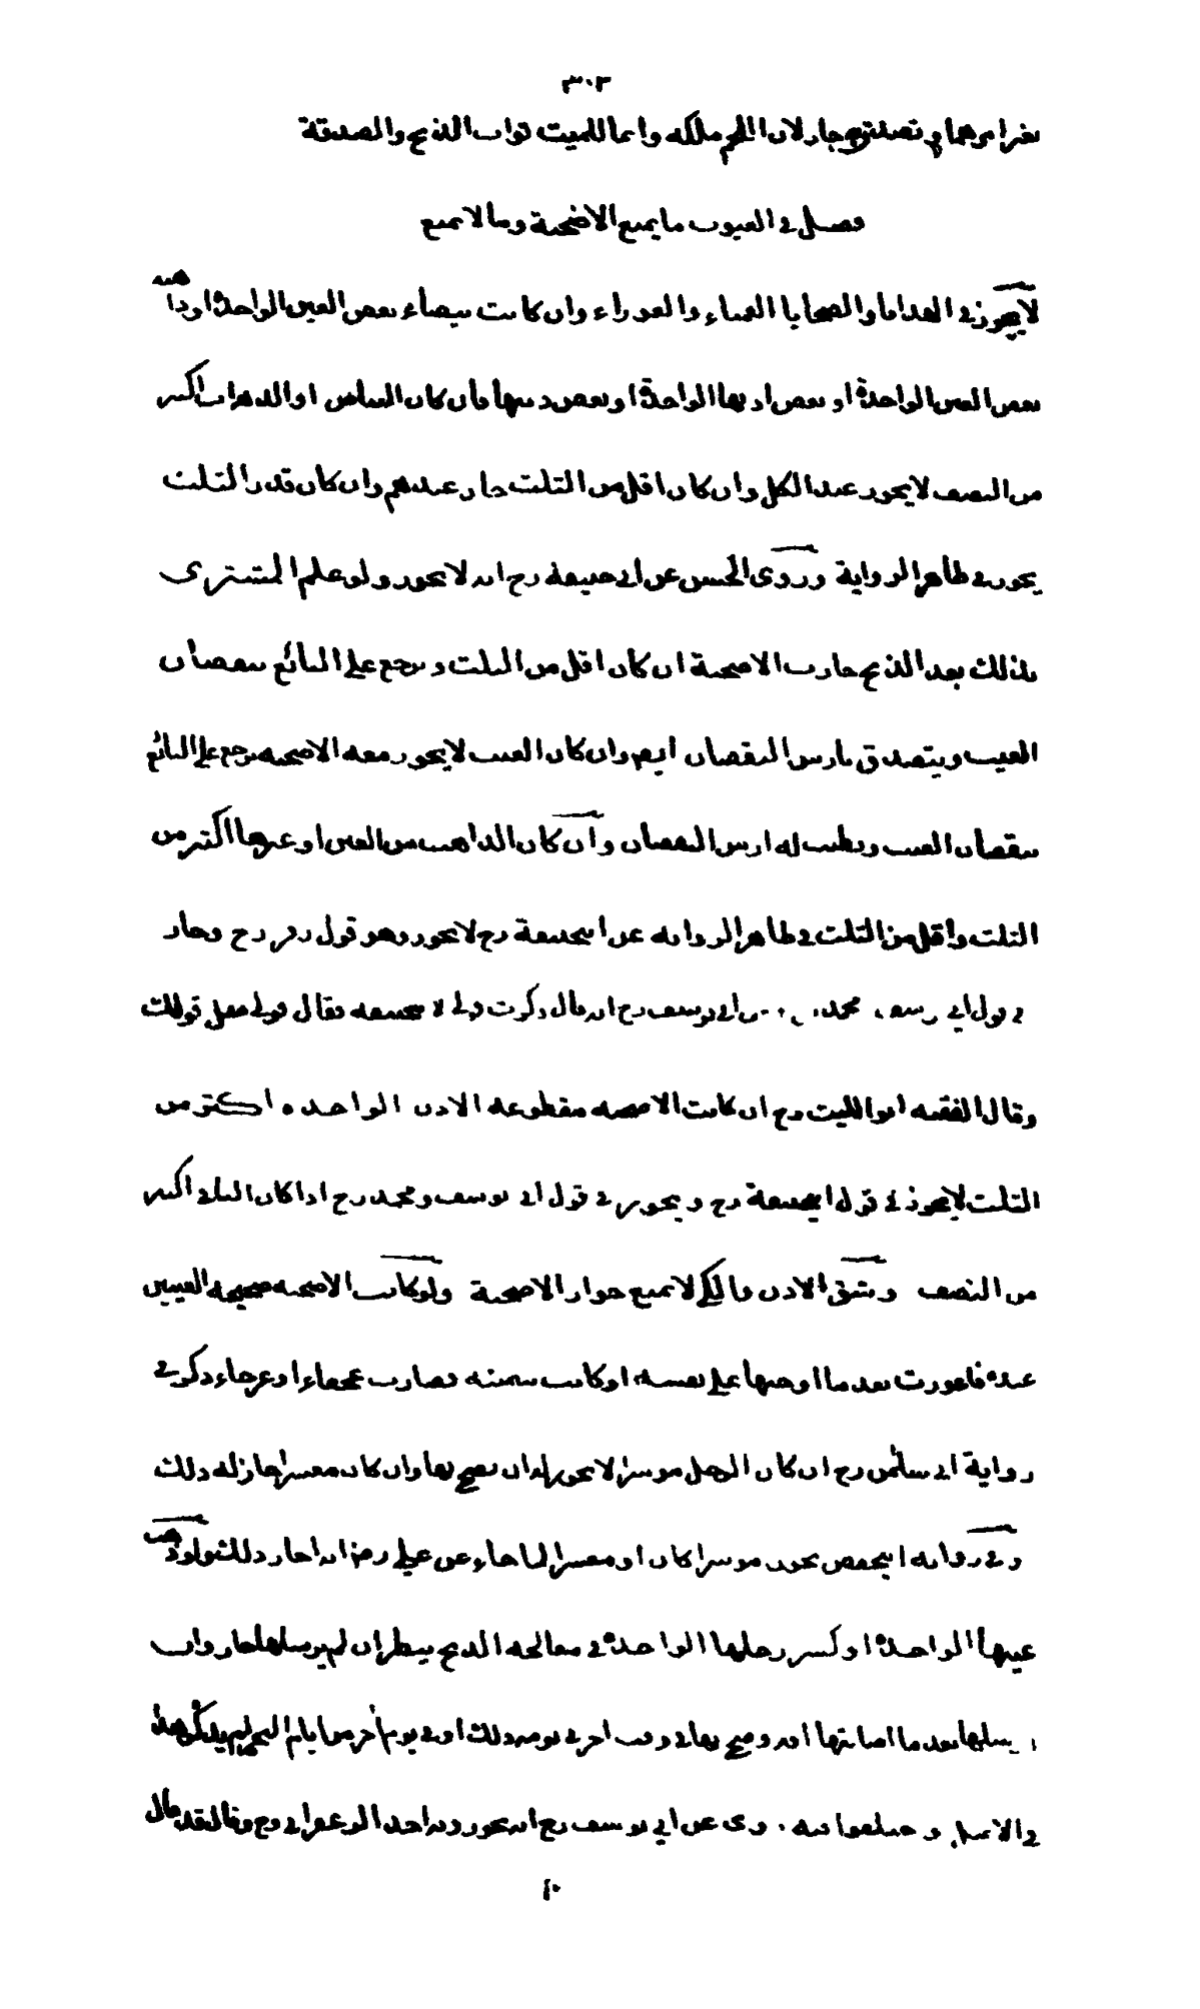 ٣٠٣
بغير امرهما وتصدقه جاز لان اللحم ملكه وانما للميت ثواب الذبح والصدقة
فصل في العيوب ما يمنع الاضحية وما لا يمنع
لا يجوز في الهدايا والضحايا العمياء والعوراء وان كانت بيضاء بعض العين الواحدة او ذاهبه
بعض العين الواحدة او بعض اذنها الواحدة او بعض ذنبها فان كان البياض او الذهاب اكثر
من النصف لا يجوز عند الكل وان كان اقل من الثلث جاز عندهم وان كان قدر الثلث
يجوز في ظاهر الرواية وروى الحسن عن ابي حنيفة رح انه لا يجوز ولو علم المشترى
بذلك بعد الذبح جازت الاضحية ان كان اقل من الثلث ويرجع على البائع بنقصان
العيب ويتصدق بارش النقصان ايضا وان كان العيب لا يجوز معه الاضحيه يرجع على البائع
بنقصان العيب ويطيب له ارش النقصان وان كان الذاهب من العين او غيرها اكثر من
الثلث واقل من الثلث في ظاهر الروايه عن ابيحنيفة رح لا يجوز وهو قول زفر رح وجاز
في قول ابي يوسف ومحمد ابي يوسف رح انه قال ذكرت قولي لابيحنيفه فقال قولي مثل قولك
وقال الفقيه ابو الليث رح ان كانت الاضحيه مقطوعه الاذن الواحده اكثر من
الثلث لا يجوز في قول ابيحنيفة رح ويجوز في قول ابي يوسف ومحمد رح اذا كان الباقي اكثر
من النصف وشق الاذن والكي لا يمنع جواز الاضحية ولو كانت الاضحيه صحيحه العينين
عنده فاعورت بعد ما اوجبها على نفسه او كانت سمينه فصارت عجفاء او عرجاء ذكر في
رواية ابي سليمن رح ان كان الرجل موسرا لا يجوز له ان يضحي بها وان كان معسرا جاز له ذلك
وفي روايه ابيحفص يجوز موسرا كان او معسرا لما جاء عن علي رض انه اجاز ذلك ولو ذهب
عينها الواحدة او كسر رجلها الواحدة في معالجه الذبح ينظر ان لم يرسلها جاز وان
ارسلها بعد ما اصابتها آفه وضحى بها في وقت آخر في يومه ذلك او في يوم آخر من ايام النحر لم يذكر هذا
في الاصل واختلفوا فيه روى عن ابي يوسف رح انه يجوز وبه اخذ الزعفراني رح وقال
٤٠